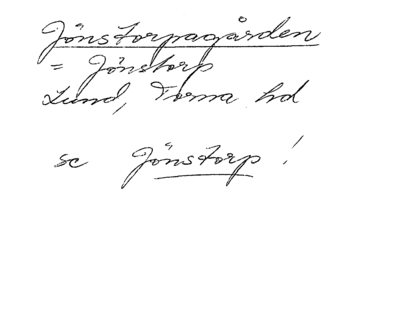 Jönstorpagården
= Jönstorp
Lund, Torna hd
se Jönstorp !